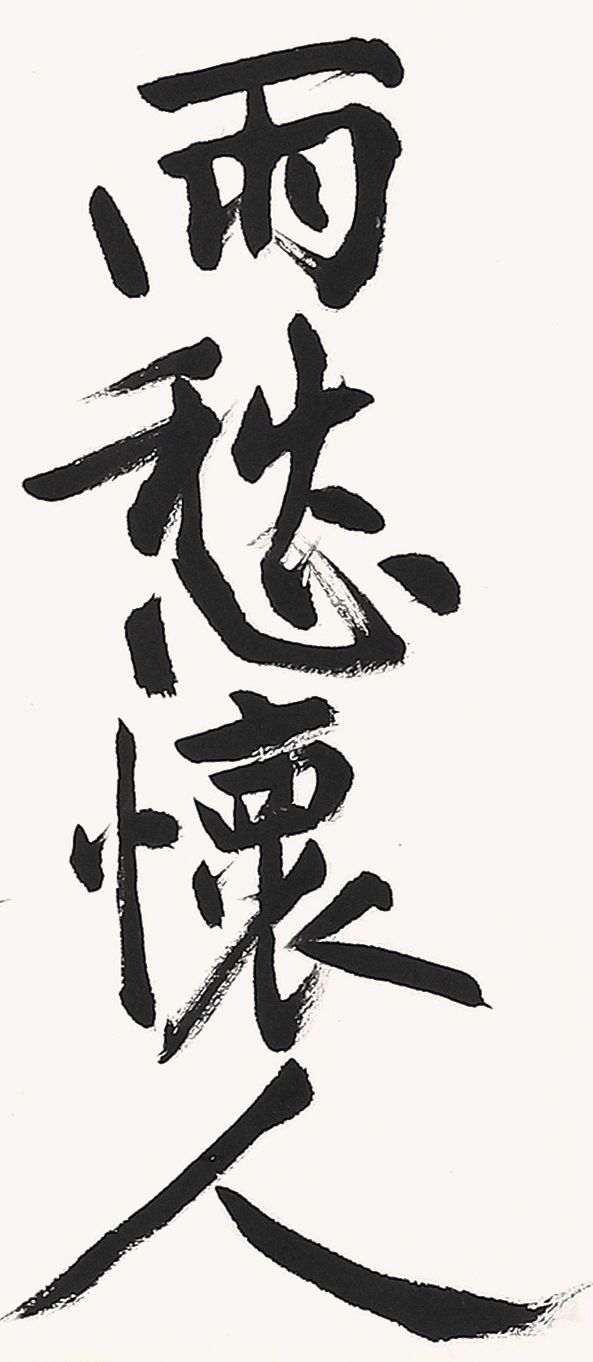 雨愁懷人